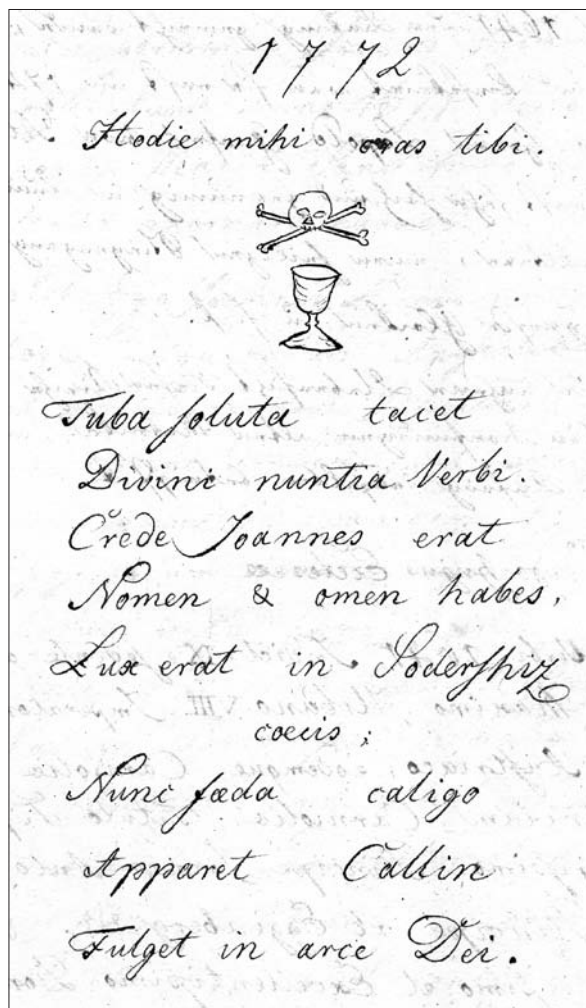 1772
Hodie mihi cras tibi.
Tuba soluta tacet
Divini nuntia Verbi.
Crede Joannes erat
Nomen & omen habes,
Lux erat in Sodershiz
coecis;
Nunc fæda caligo
Apparet Callin
Fulget in arce Dei.